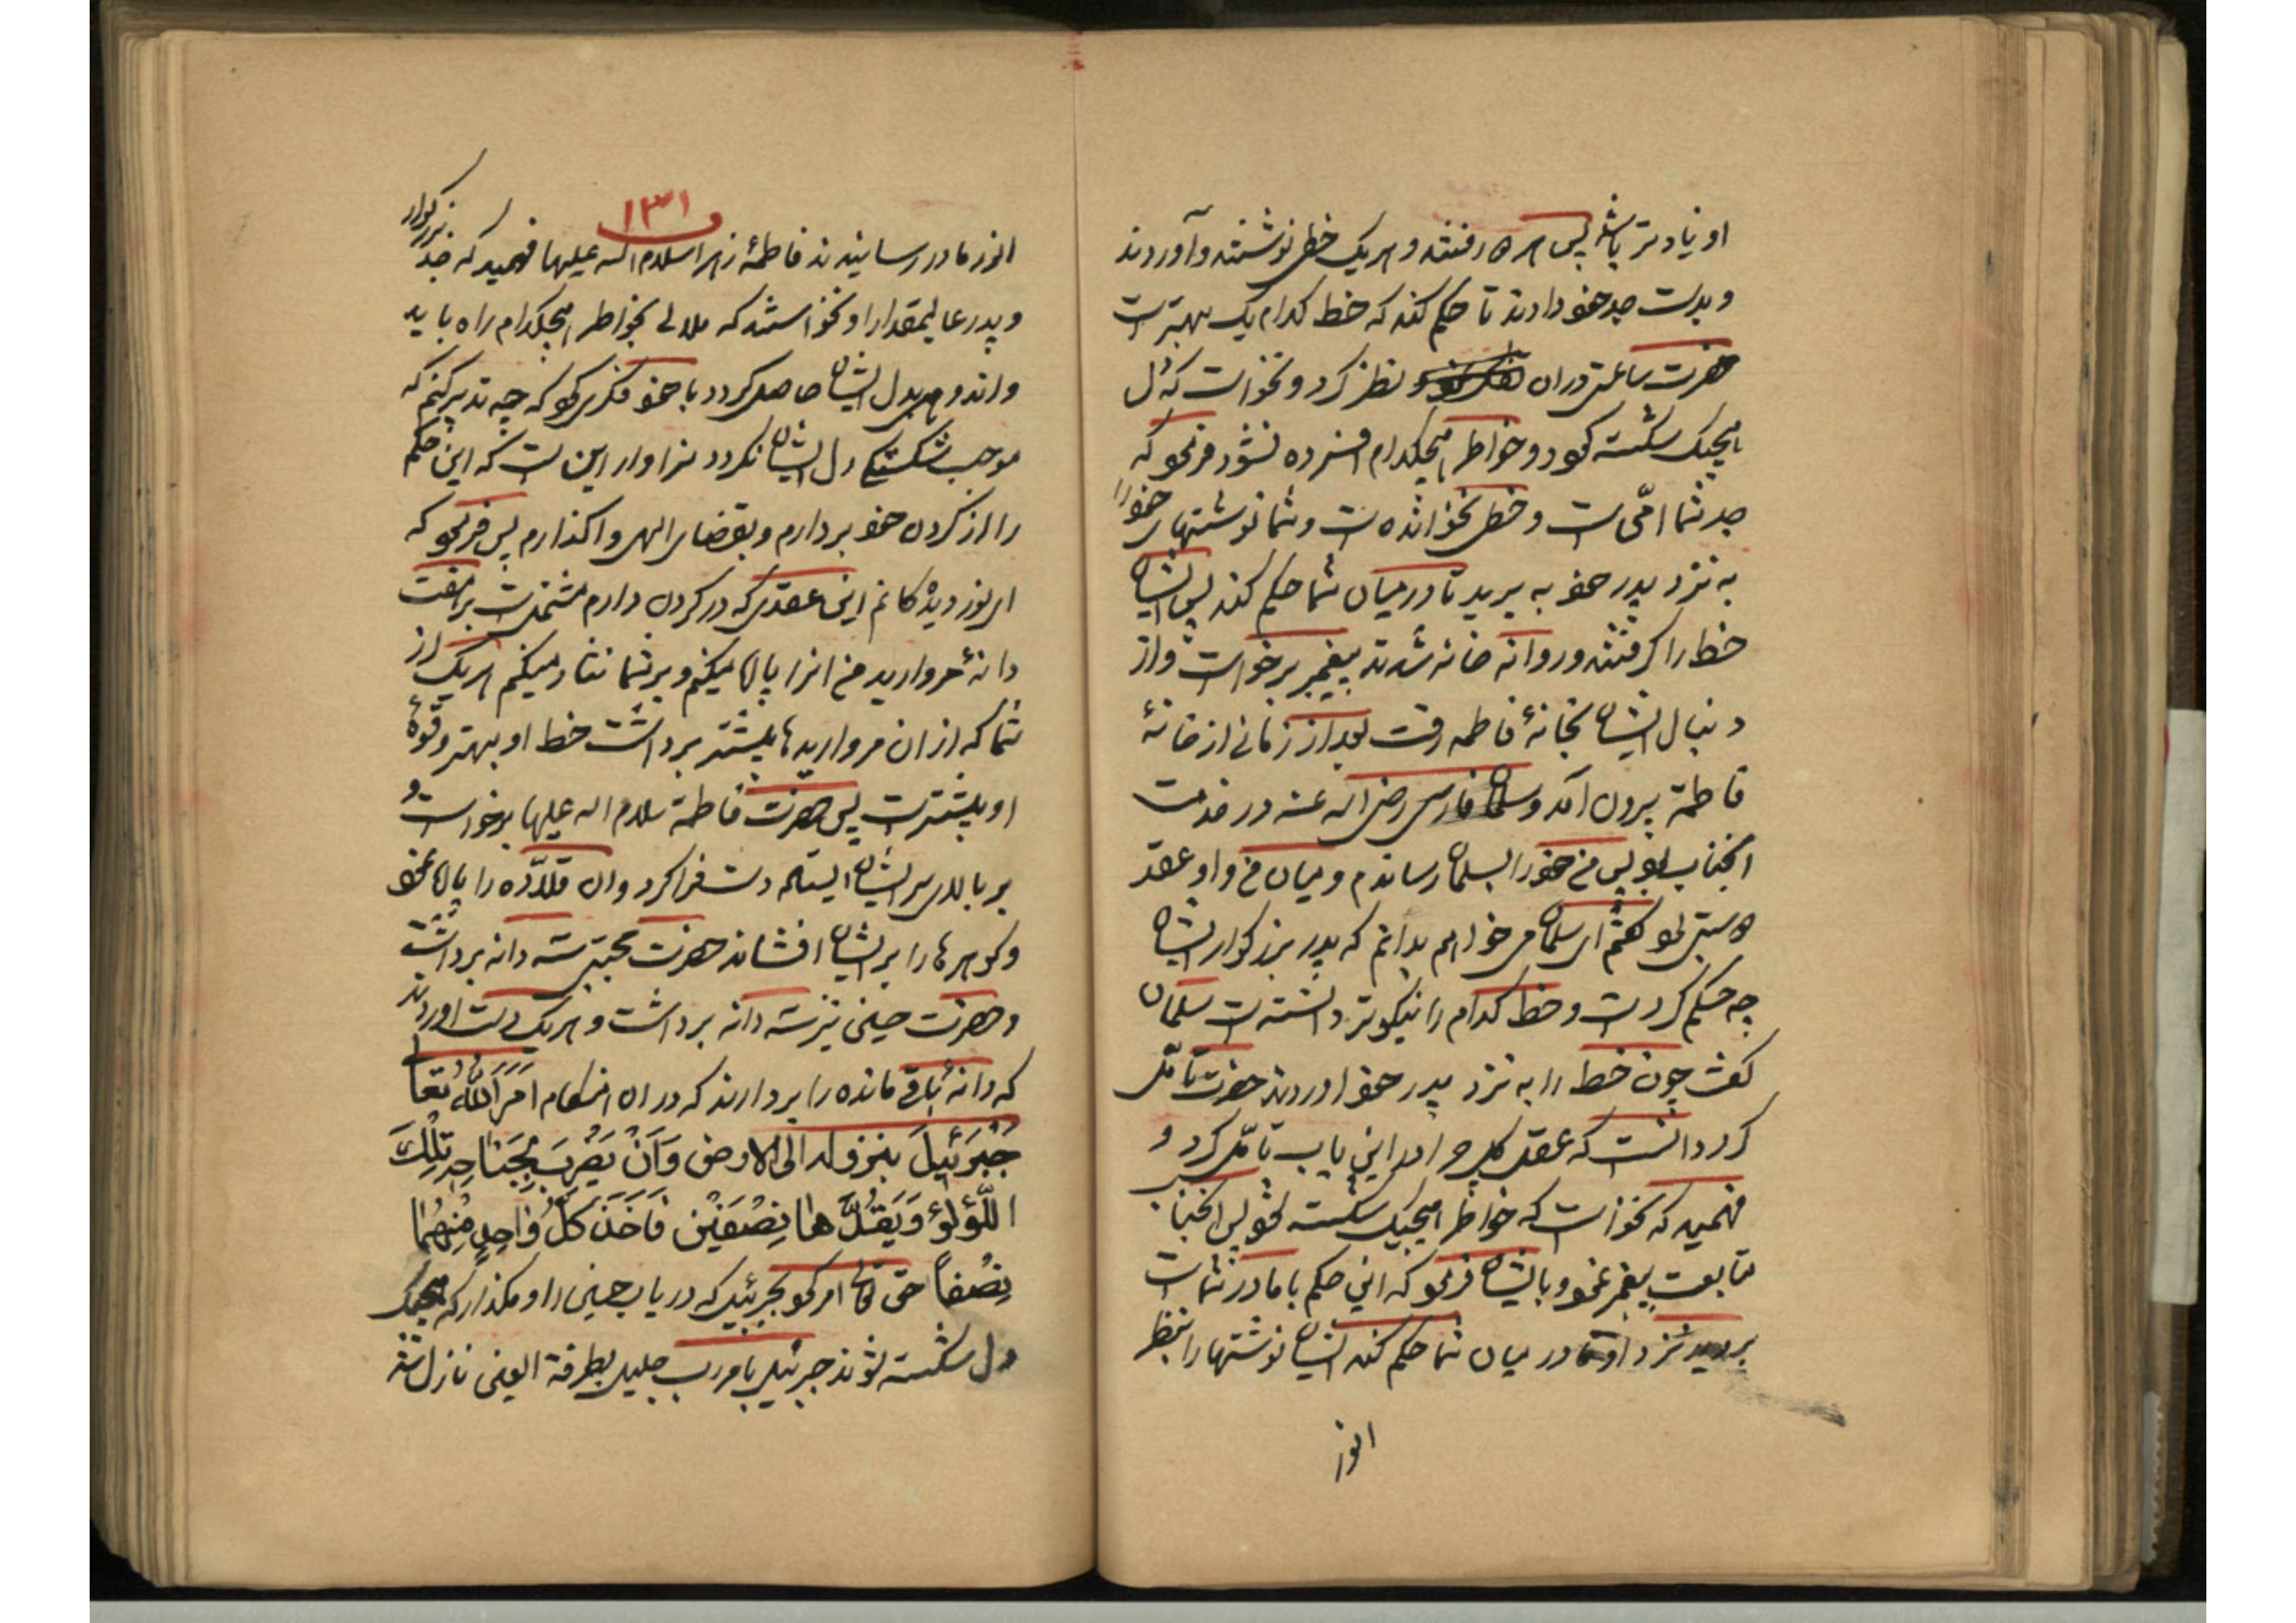 او زیادتر باشد پس هر دو رفتند و هر یک خطی نوشتند و آوردند
و بدست جد خود دادند تا حکم کند که خط کدام یک بهتر است
حضرت ساعتی در ان نظر کرد و نخواست که دل
هیچیک شکسته کردد و خواطر هیچکدام افسرده نشود فرمود که
جد شما امّی است و خطی نخوانده است و شما نوشتهای خود را
به نزد پدر خود به برید تا در میان شما حکم کند پس ایشان
خط را کرفتند و روانه خانه شدند پیغمبر برخواست و از
دنبال ایشان بخانهٔ فاطمه رفت بعد از زمانی از خانهٔ
فاطمة بیرون آمد و سلمان فارسی رضی اله عنه در خدمت
انجناب بود پس من خود را بسلمان رساندم و میان من و او عقد
دوستی بود کفتم ای سلمان می خواهم بدانم که پدر بزرکوار ایشان
چه حکم کردست و خط کدام را نیکوتر دانسته است سلمان
کفت چون خط را به نزد پدر خود اوردند حضرت تامّل
کرد دانست که عقل کل چرا در این باب تامّل کرد و
فهمید که نخواست که خواطر هیچیک شکسته شود پس انجناب
متابعت پیغمبر نمود و بایشان فرمود که این حکم با مادر شماست
برید نزد او تا در میان شما حکم کند ایشان نوشتها را بنظر
انور
۱۳۱
انور مادر رسانیدند فاطمهٔ زهرا سلام اله علیها فهمید که جد بزرکوار
و پدر عالیمقدار او نخواستند که ملالی بخواطر هیچکدام راه یابد
و اندوهی بدل ایشان حاصل کردد با خود فکر کرد که چه تدبیر کنم که
موجب شکستکی دل ایشان نکردد سزاوار این است که این حکم
را از کردن خود بردارم و بقضای الهی واکذارم پس فرمود که
ای نور دیدکانم این عقدی که در کردن دارم مشتملست بر هفت
دانهٔ مروارید من انرا پاره میکنم و بر شما نثار میکنم هر یک از
شما که از ان مرواریدها بیشتر برداشت خط او بهتر و قوهٔ
او بیشتر است پس حضرت فاطمة سلام اله علیها برخواست و
بر بالای سر ایشان ایستاد دست فرا کرد و ان قلادّه را پاره نمود
و کوهرها را بر ایشان افشاند حضرت مجتبی سه دانه برداشت
و حضرت حسین نیز سه دانه برداشت و هر یک دست اوردند
که دانهٔ باقی مانده را بردارند که در ان هنکام اَمَرَ اللّٰهُ تعا
جَبرَئیلَ بنزوله الی الارض وَاَنْ یَضرِبَ بِجَناحِهِ تِلْكَ
اللّؤلؤ وَیَقُدَّ ها نِصْفَیْن فَاَخَذَ کلُّ واحِدٍ مِنْهُمٰا
نِصْفاً حق تعالی امر کرد بجبرئیل که دریاب حسنین را و مکذار که هیچیک
دل شکسته شوند جبرئیل بامر رب جلیل بطرفة العینی نازل شد